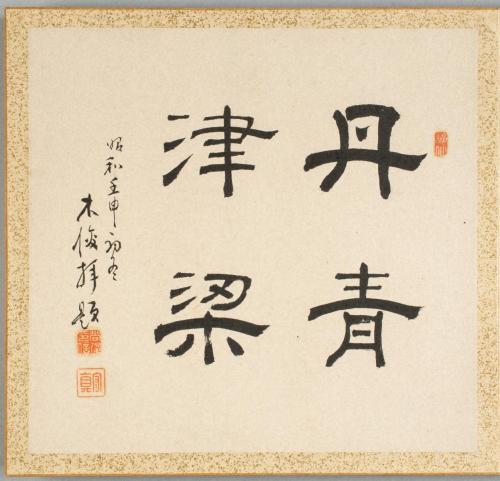 丹青
津梁
昭和壬申初冬
木俊拝題